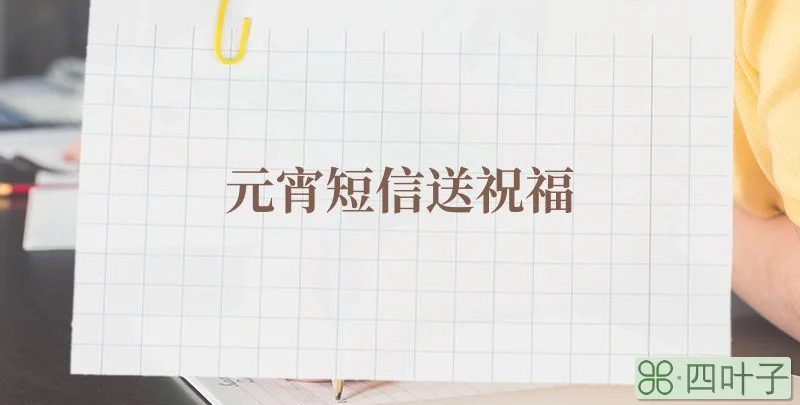 元宵短信送祝福
四叶子